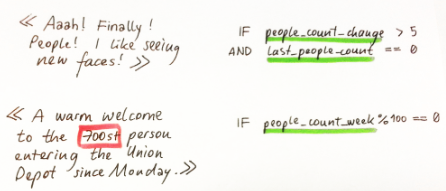 « Aaah! Finally!
People! I like seeing
new faces! »
IF people_count_change > 5
AND last_people_count == 0
« A warm welcome
to the 700st person
entering the Union
Depot since Monday. »
IF people_count_week % 100 == 0